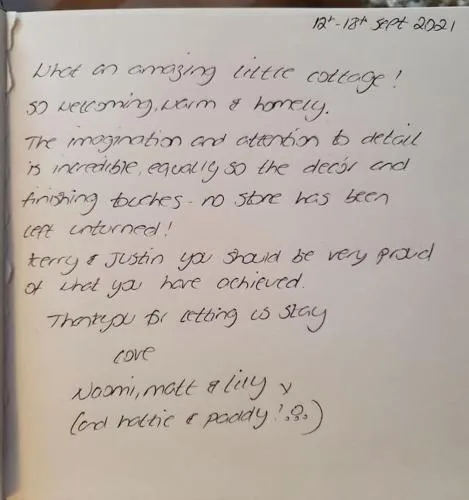 12th - 18th Sept 2021
What an amazing little cottage!
So welcoming, warm & homely.
The imagination and attention to detail
is incredible, equally so the decór and
finishing touches - no stone has been
left unturned!
Kerry & Justin you should be very proud
of what you have achieved.
Thankyou for letting us stay
love
Naomi, Matt & Lily x
(and Hattie & Paddy!)